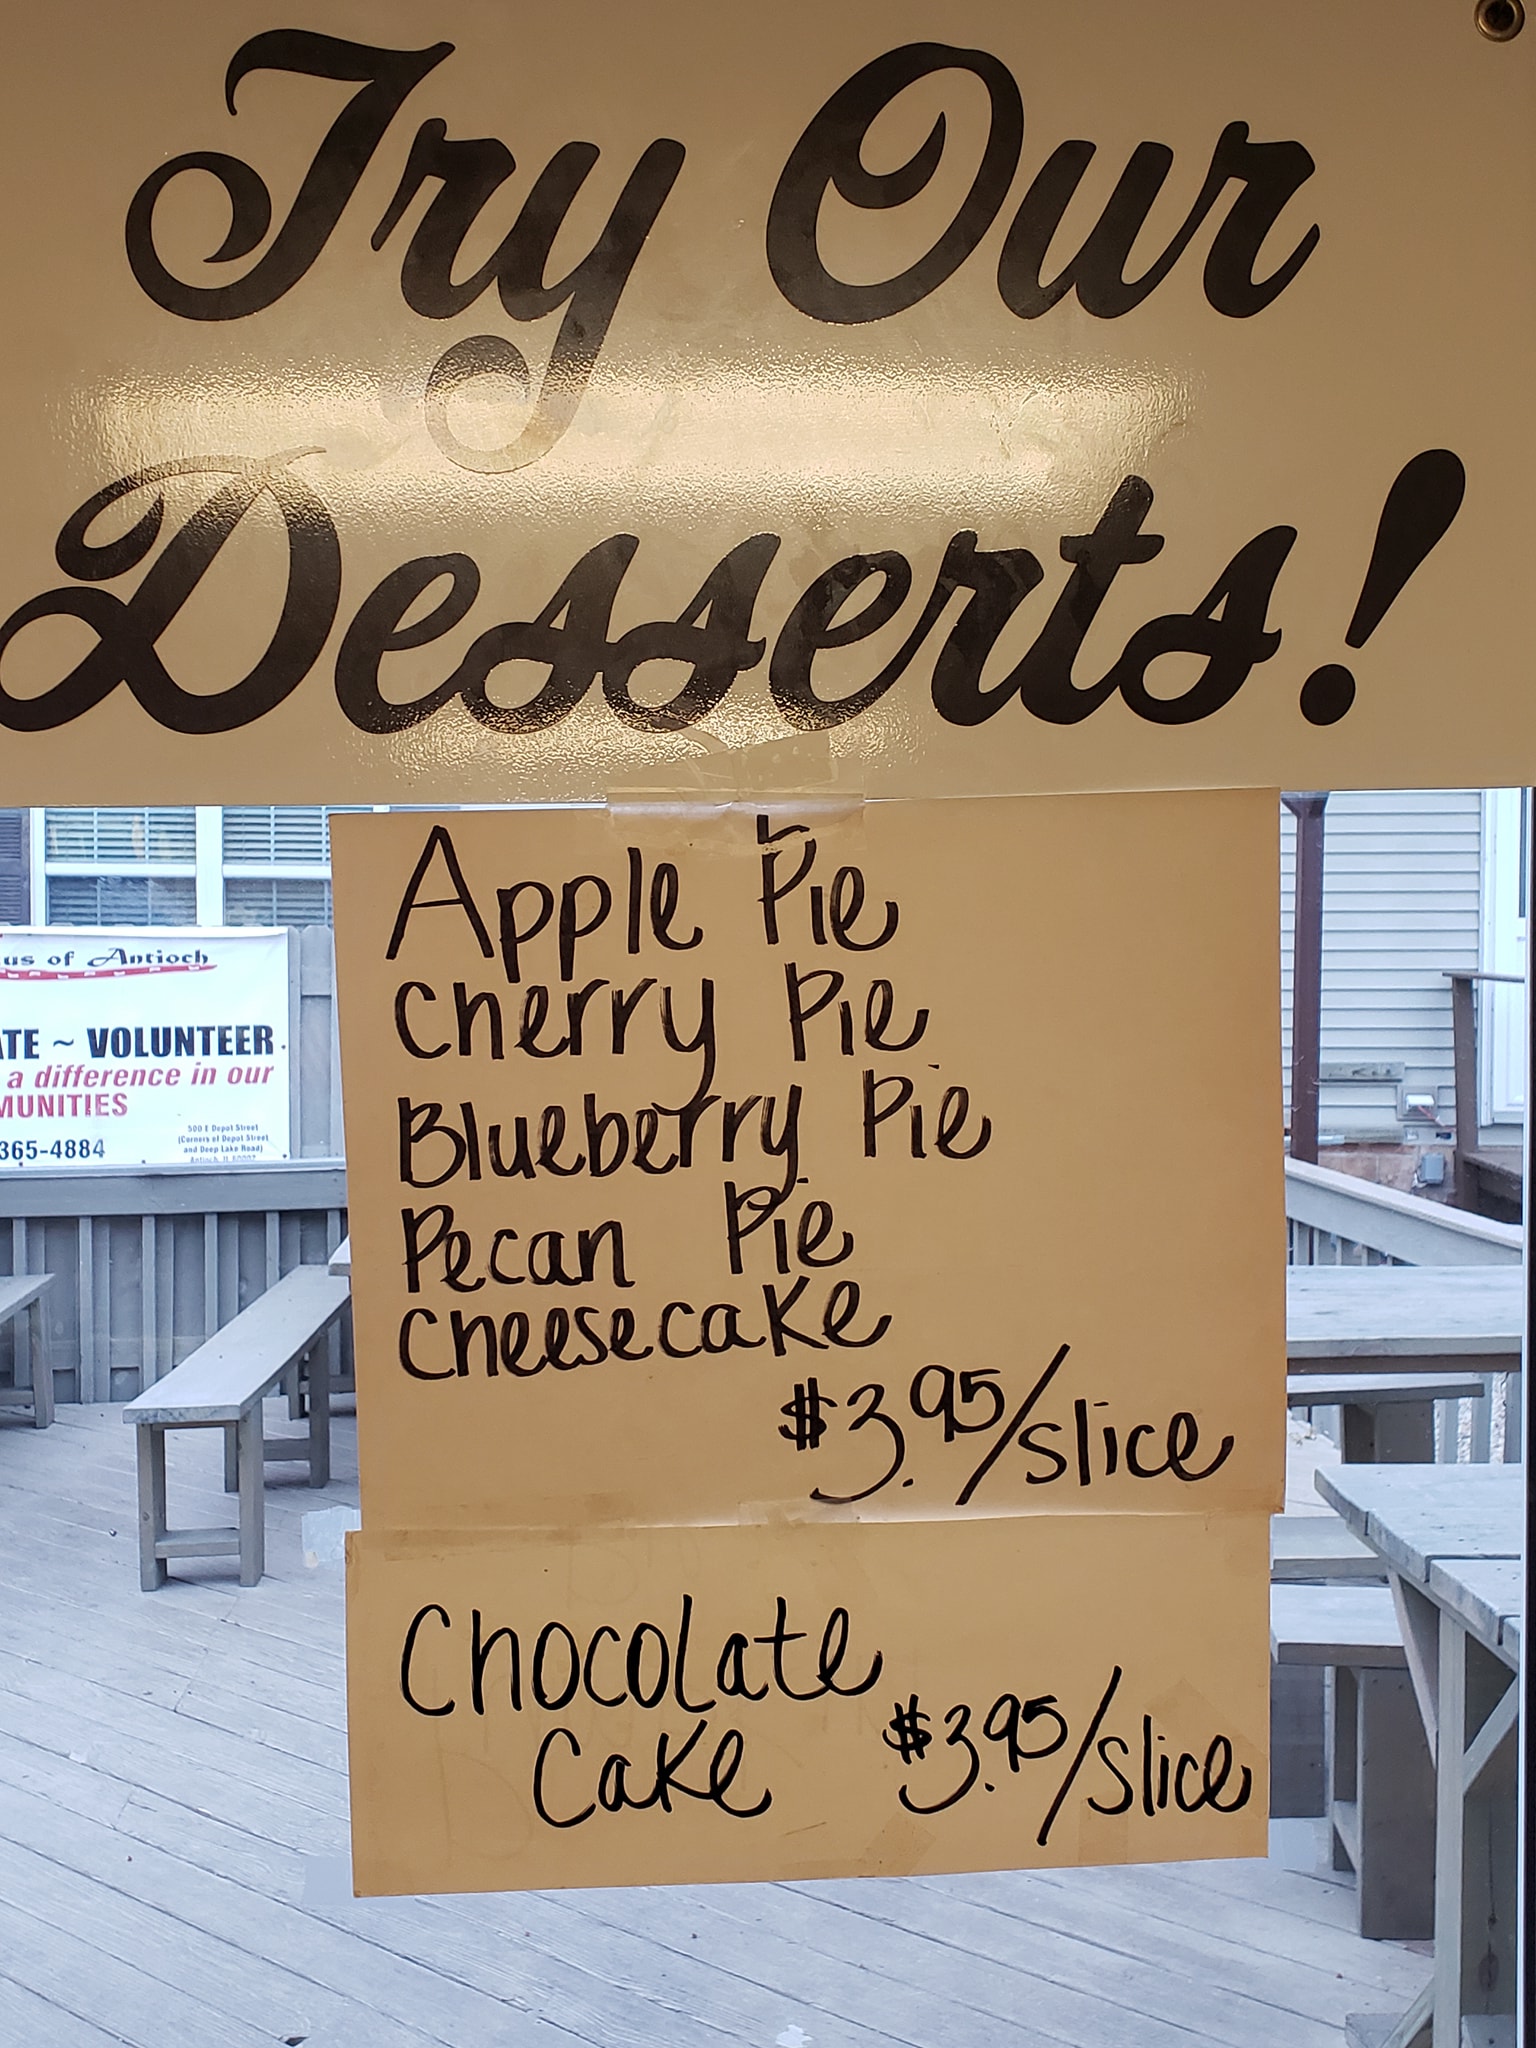 Try Our
Desserts!
Apple Pie
Cherry Pie
Blueberry Pie
Pecan Pie
Cheesecake
$3.95/slice
Chocolate
Cake $3.95/slice
of Antioch
~ VOLUNTEER
a difference in our
365-4884
500 E Depot Street
(Corners of Depot Street
and Deep Lake Road)